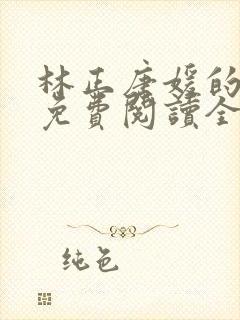 林正唐媛的
免費閱讀全
纯色